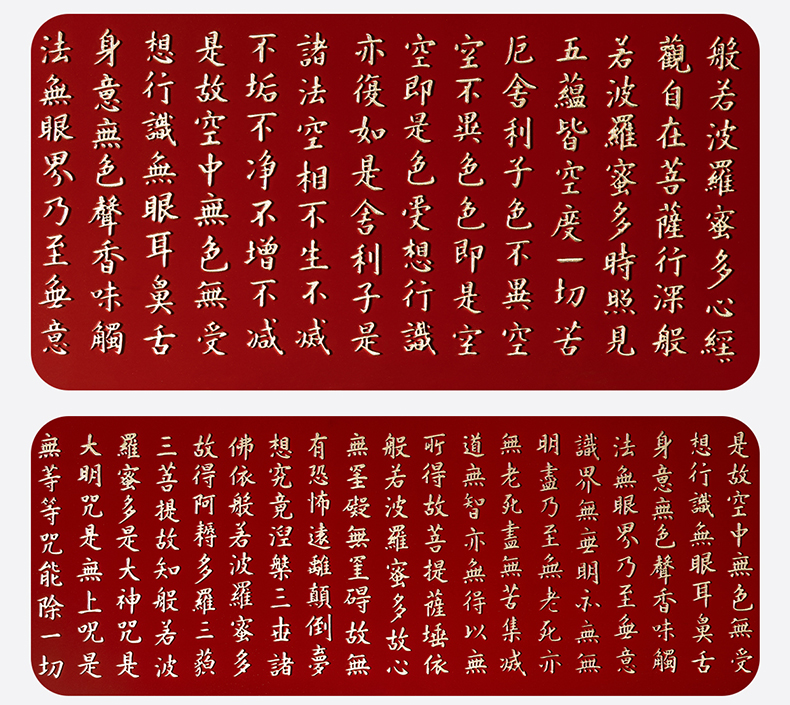 般若波羅蜜多心經
觀自在菩薩行深般
若波羅蜜多時照見
五蘊皆空度一切苦
厄舍利子色不異空
空不異色色即是空
空即是色受想行識
亦復如是舍利子是
諸法空相不生不滅
不垢不净不增不减
是故空中無色無受
想行識無眼耳鼻舌
身意無色聲香味觸
法無眼界乃至無意
是故空中無色無受
想行識無眼耳鼻舌
身意無色聲香味觸
法無眼界乃至無意
識界無無明亦無無
明盡乃至無老死亦
無老死盡無苦集滅
道無智亦無得以無
所得故菩提薩埵依
般若波羅蜜多故心
無罣礙無罣碍故無
有恐怖遠離顛倒夢
想究竟涅槃三世諸
佛依般若波羅蜜多
故得阿耨多羅三藐
三菩提故知般若波
羅蜜多是大神咒是
大明咒是無上呪是
無等等咒能除一切